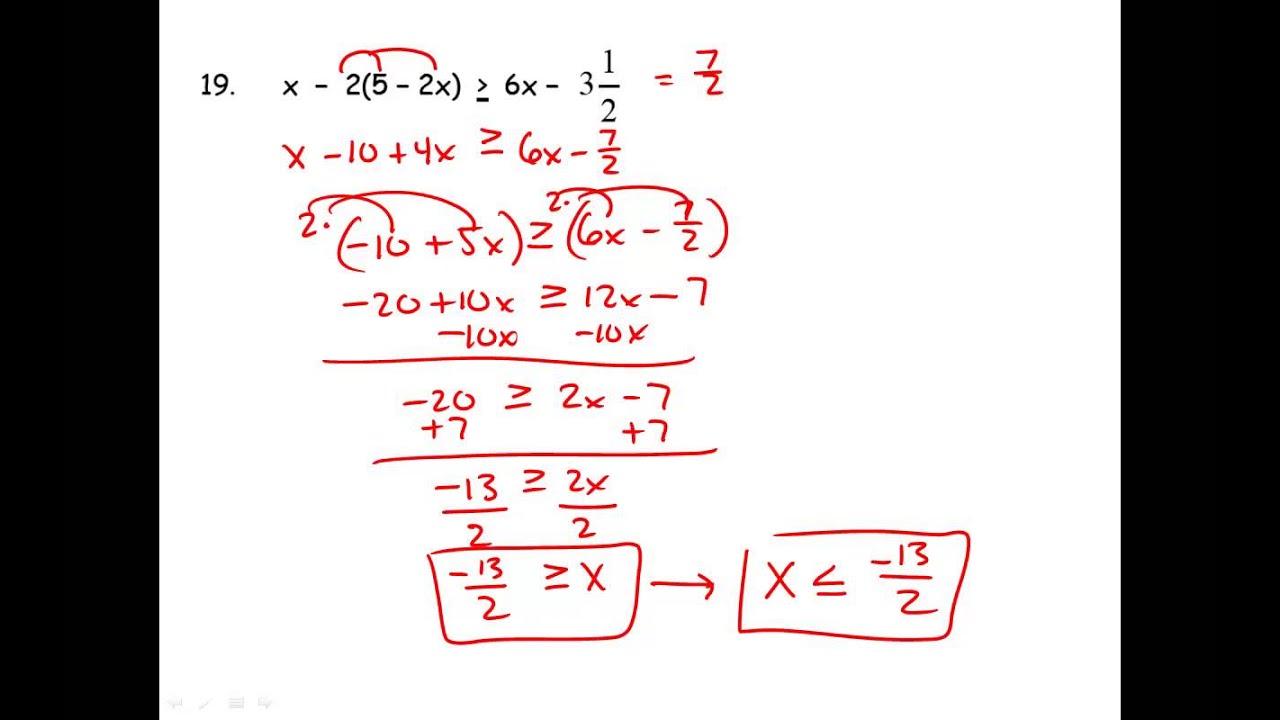 19. x - 2(5 - 2x) ≥ 6x - 3 1/2 = 7/2
x - 10 + 4x ≥ 6x - 7/2
2·(-10 + 5x) ≥ 2·(6x - 7/2)
-20 + 10x ≥ 12x - 7
-10x -10x
-20 ≥ 2x - 7
+7 +7
-13/2 ≥ 2x/2
-13/2 ≥ x → x ≤ -13/2